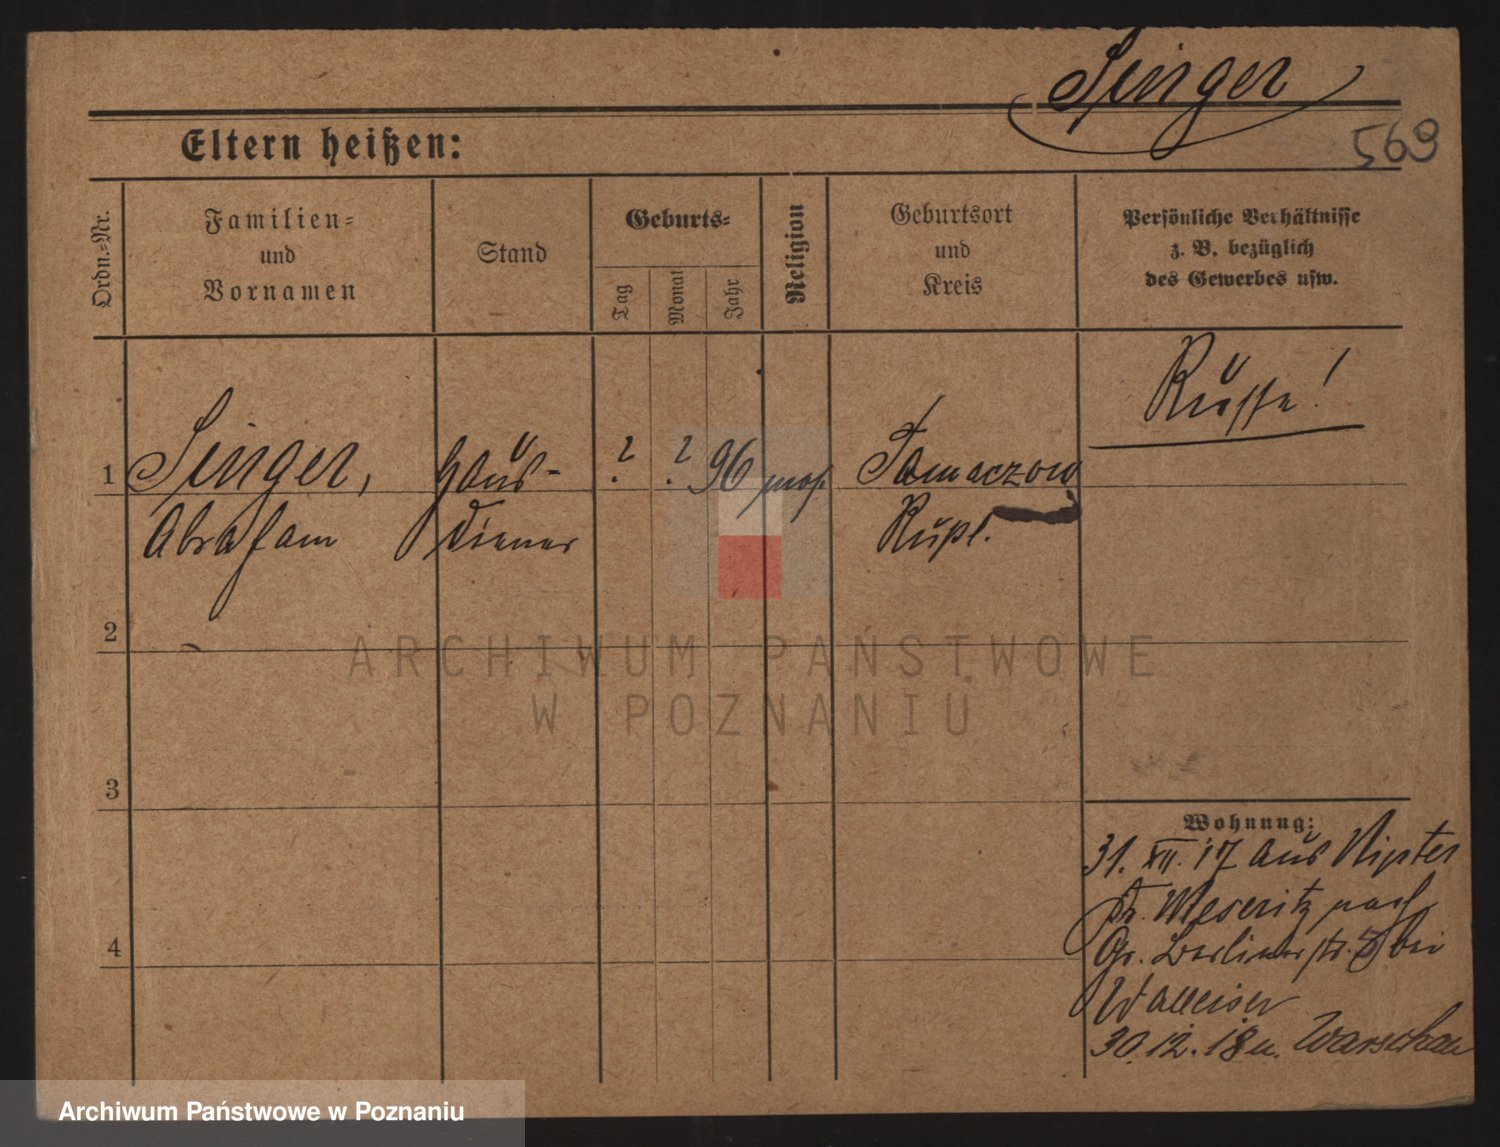 Singer
569
Eltern heißen:
Ordn.-Nr.
Familien-
und
Vornamen
Stand
Geburts-
Tag
Monat
Jahr
Religion
Geburtsort
und
Kreis
Persönliche Verhältnisse
z. B. bezüglich
des Gewerbes usw.
Russe!
1 Singer, Haus- ? ? 96 mos. Tomaczow
Abraham Diener Rußl.
2
3
4
Wohnung:
31. XII. 17 aus
Kr. Meseritz nach
Gr. Berlinerstr. bei
30.12.18 n. Warschau
ARCHIWUM PAŃSTWOWE
W POZNANIU
Archiwum Państwowe w Poznaniu